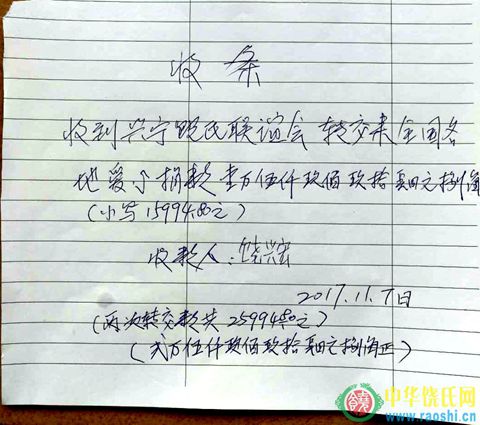 收条
收到兴宁饶氏联谊会转交来全国各
地爱心捐款壹万伍仟玖佰玖拾肆元捌角
(小写15994.80元)
收款人:饶兴宏
2017.11.7日
(两次转交款共25994.80元)
(贰万伍仟玖佰玖拾肆元捌角正)
中华饶氏网
www.raoshi.cn